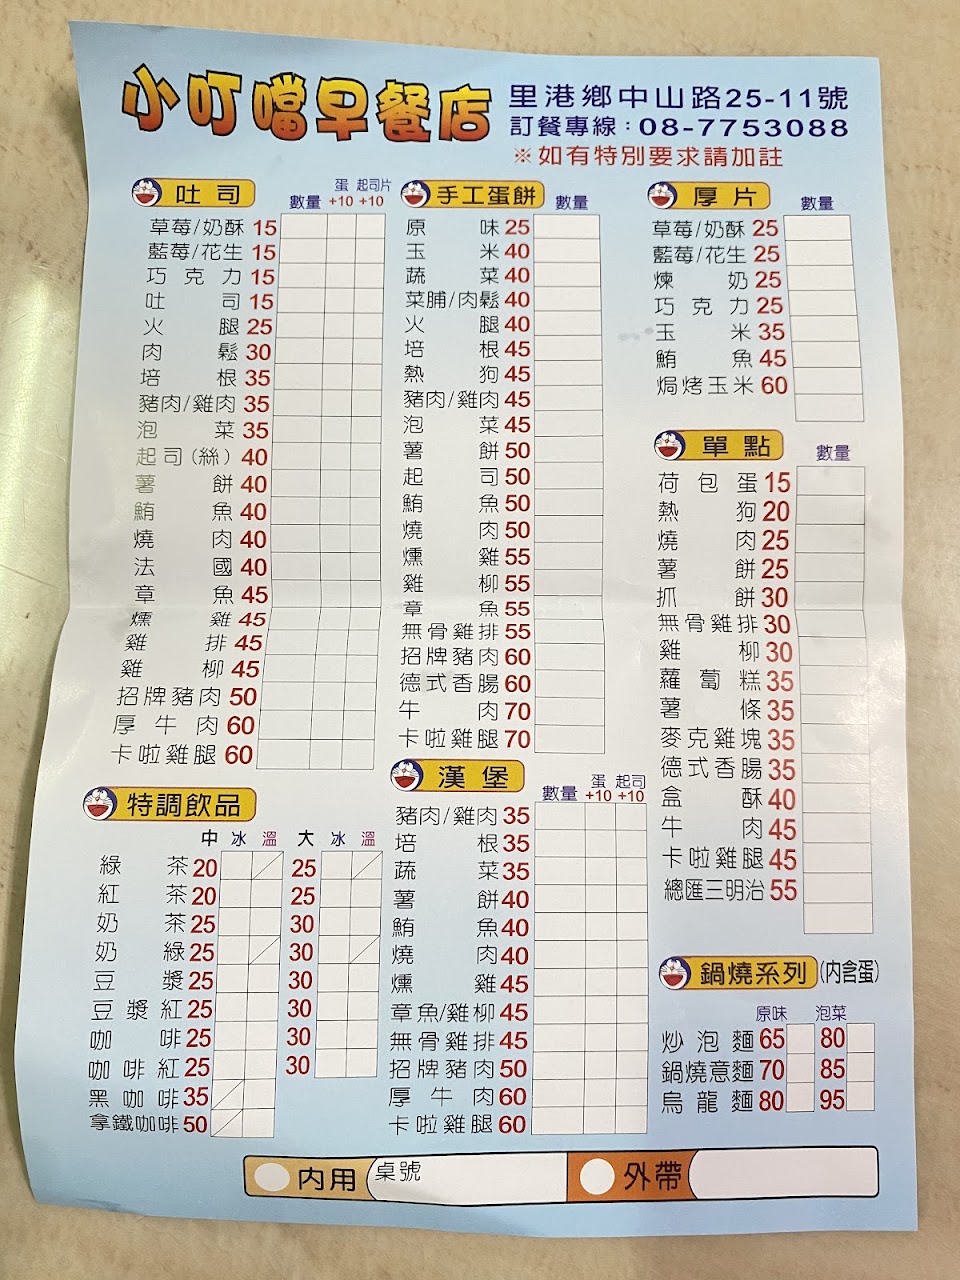 小叮噹早餐店
里港鄉中山路25-11號
訂餐專線：08-7753088
※如有特別要求請加註
吐司 數量 蛋+10 起司片+10
草莓/奶酥 15
藍莓/花生 15
巧克力 15
吐司 15
火腿 25
肉鬆 30
培根 35
豬肉/雞肉 35
泡菜 35
起司(絲) 40
薯餅 40
鮪魚 40
燒肉 40
法國 40
章魚 45
燻雞 45
雞排 45
雞柳 45
招牌豬肉 50
厚牛肉 60
卡啦雞腿 60
手工蛋餅 數量
原味 25
玉米 40
蔬菜 40
菜脯/肉鬆 40
火腿 40
培根 45
熱狗 45
豬肉/雞肉 45
泡菜 45
薯餅 50
起司 50
鮪魚 50
燒肉 50
燻雞 55
雞柳 55
章魚 55
無骨雞排 55
招牌豬肉 60
德式香腸 60
牛肉 70
卡啦雞腿 70
厚片 數量
草莓/奶酥 25
藍莓/花生 25
煉奶 25
巧克力 25
玉米 35
鮪魚 45
焗烤玉米 60
單點 數量
荷包蛋 15
熱狗 20
燒肉 25
薯餅 25
抓餅 30
無骨雞排 30
雞柳 30
蘿蔔糕 35
薯條 35
麥克雞塊 35
德式香腸 35
盒酥 40
牛肉 45
卡啦雞腿 45
總匯三明治 55
特調飲品
中 冰 溫 大 冰 溫
綠茶 20 25
紅茶 20 25
奶茶 25 30
奶綠 25 30
豆漿 25 30
豆漿紅 25 30
咖啡 25 30
咖啡紅 25 30
黑咖啡 35
拿鐵咖啡 50
漢堡 數量 蛋+10 起司+10
豬肉/雞肉 35
培根 35
蔬菜 35
薯餅 40
鮪魚 40
燒肉 40
燻雞 45
章魚/雞柳 45
無骨雞排 45
招牌豬肉 50
厚牛肉 60
卡啦雞腿 60
鍋燒系列(內含蛋)
原味 泡菜
炒泡麵 65 80
鍋燒意麵 70 85
烏龍麵 80 95
內用 桌號 外帶